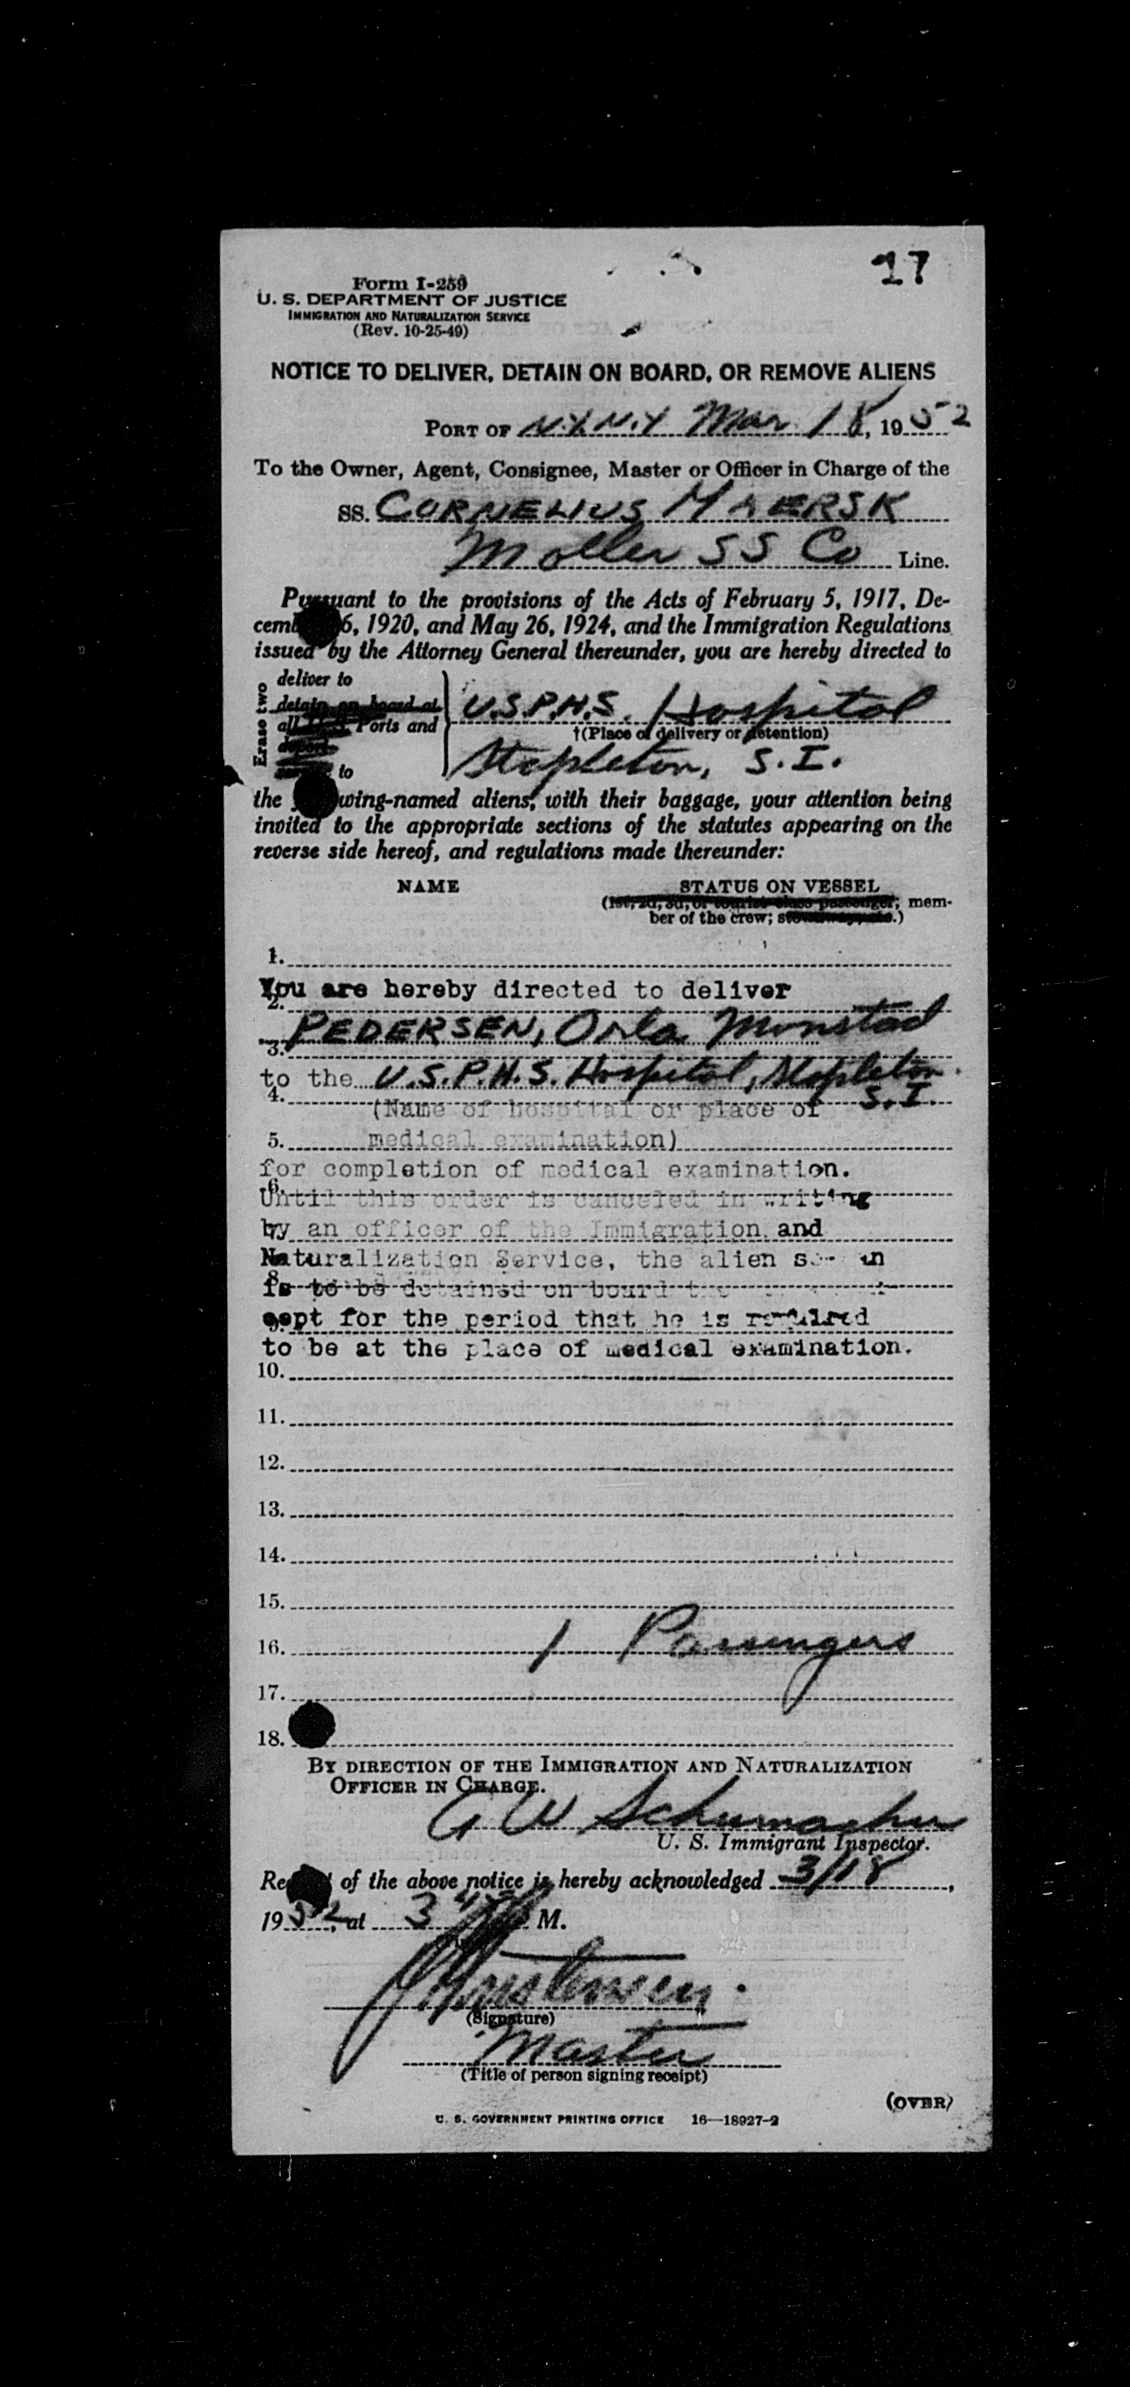 17
Form I-259
U. S. DEPARTMENT OF JUSTICE
IMMIGRATION AND NATURALIZATION SERVICE
(Rev. 10-25-49)
NOTICE TO DELIVER, DETAIN ON BOARD, OR REMOVE ALIENS
PORT OF N.Y. N.Y Mar 18, 1952
To the Owner, Agent, Consignee, Master or Officer in Charge of the
SS. CORNELIUS MAERSK
Moller SS Co Line.
Pursuant to the provisions of the Acts of February 5, 1917, De-
cem 6, 1920, and May 26, 1924, and the Immigration Regulations
issued by the Attorney General thereunder, you are hereby directed to
Erase two
deliver to
detain on board at
all U.S. Ports and
deport
to
U.S.P.H.S. Hospital
†(Place of delivery or detention)
Stapleton, S.I.
the wing-named aliens, with their baggage, your attention being
invited to the appropriate sections of the statutes appearing on the
reverse side hereof, and regulations made thereunder:
NAME STATUS ON VESSEL
(1st, 2d, 3d, or tourist class passenger; mem-
ber of the crew; stowaway, etc.)
1.
You are hereby directed to deliver
2.
PEDERSEN, Orla Monstad
3.
to the U.S.P.H.S. Hospital, Stapleton.
4. S.I.
(Name of hospital or place of
5. medical examination)
for completion of medical examination.
6.
Until this order is canceled in writing
by an officer of the Immigration and
7.
Naturalization Service, the alien
8.
is to be detained on board the
cept for the period that he is required
to be at the place of medical examination.
10.
11.
12.
13.
14.
15.
16. 1 Passengers
17.
18.
BY DIRECTION OF THE IMMIGRATION AND NATURALIZATION
OFFICER IN CHARGE.
G W Schumacher
U. S. Immigrant Inspector.
Re of the above notice is hereby acknowledged 3/18,
1952, at 3 M.
(Signature)
Master
(Title of person signing receipt)
(OVER)
U. S. GOVERNMENT PRINTING OFFICE 16—18927-2